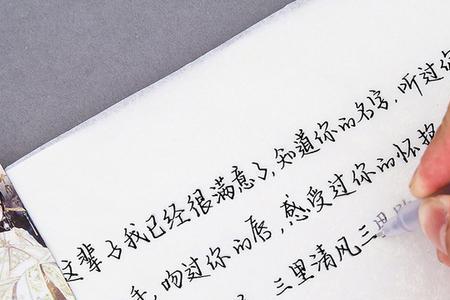 这辈子我已经很满意了,知道你的名字,听过你
手,吻过你的唇,感受过你的怀抱
三里清风三里